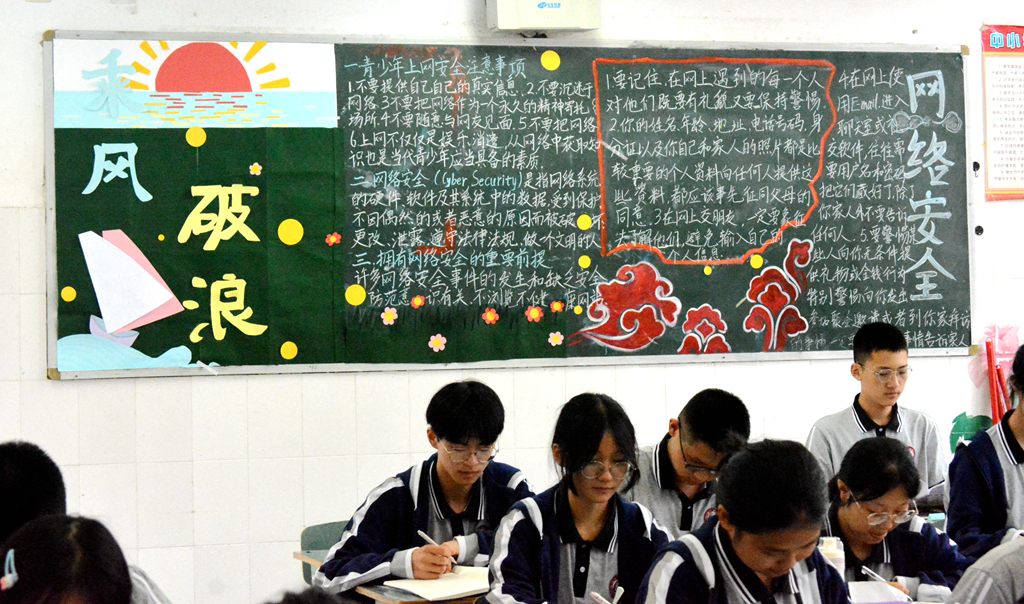 乘
风
破
浪
一青少年上网安全注意事项
1不要提供自己的真实信息、2.不要沉迷于
网络.3不要把网络作为一个永久的精神寄托
场所.4不要随意与网友见面.5.不要把网络
6上网不仅仅是娱乐,消遣,从网络中获取知
识也是当代青少年应当具备的素质.
二.网络安全(Cyber Security)是指网络系统
的硬件,软件及其系统中的数据,受到保护
不因偶然的或者恶意的原因而被破
更改、泄露,遵守法律法规,做一个文明的人
三.拥有网络安全的重要前提
许多网络安全事件的发生和缺乏安全
防范意 你有关,不浏览不健
1要记住,在网上遇到的每一个人
对他们既要有礼貌又要保持警惕.
2.你的姓名,年龄、地址,电话号码,身
份证以及你自己和家人的照片都是比
较重要的个人资料向任何人提供这
些资料,都应该事先征同父母的
同意、3.在网上交朋友,一定要多
去了解他们,避免输入自己
个人信息.
4在网上使
用Email,进入
聊天室或
交软件,往往需
要用户名和
把它们藏好了除
你家人外不要告诉
任何人、5.要警惕
些人向你无条件提
供礼物或金钱行为
特别警惕,向你发出
参加聚会邀请或者到你家拜访
情告诉家人
网络安全
中小